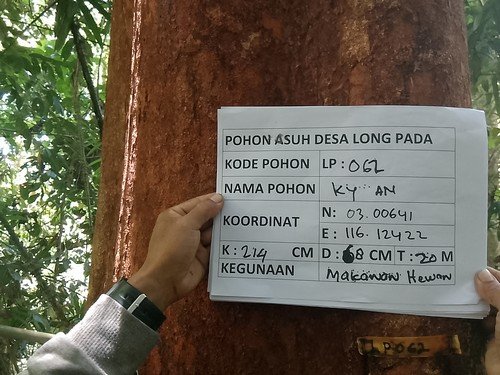 POHON ASUH DESA LONG PADA
KODE POHON LP : 062
NAMA POHON KY...AN
KOORDINAT N: 03.00641
E: 116.12422
K : 214 CM D: 68 CM T: 20 M
KEGUNAAN Makanan Hewan
LP062